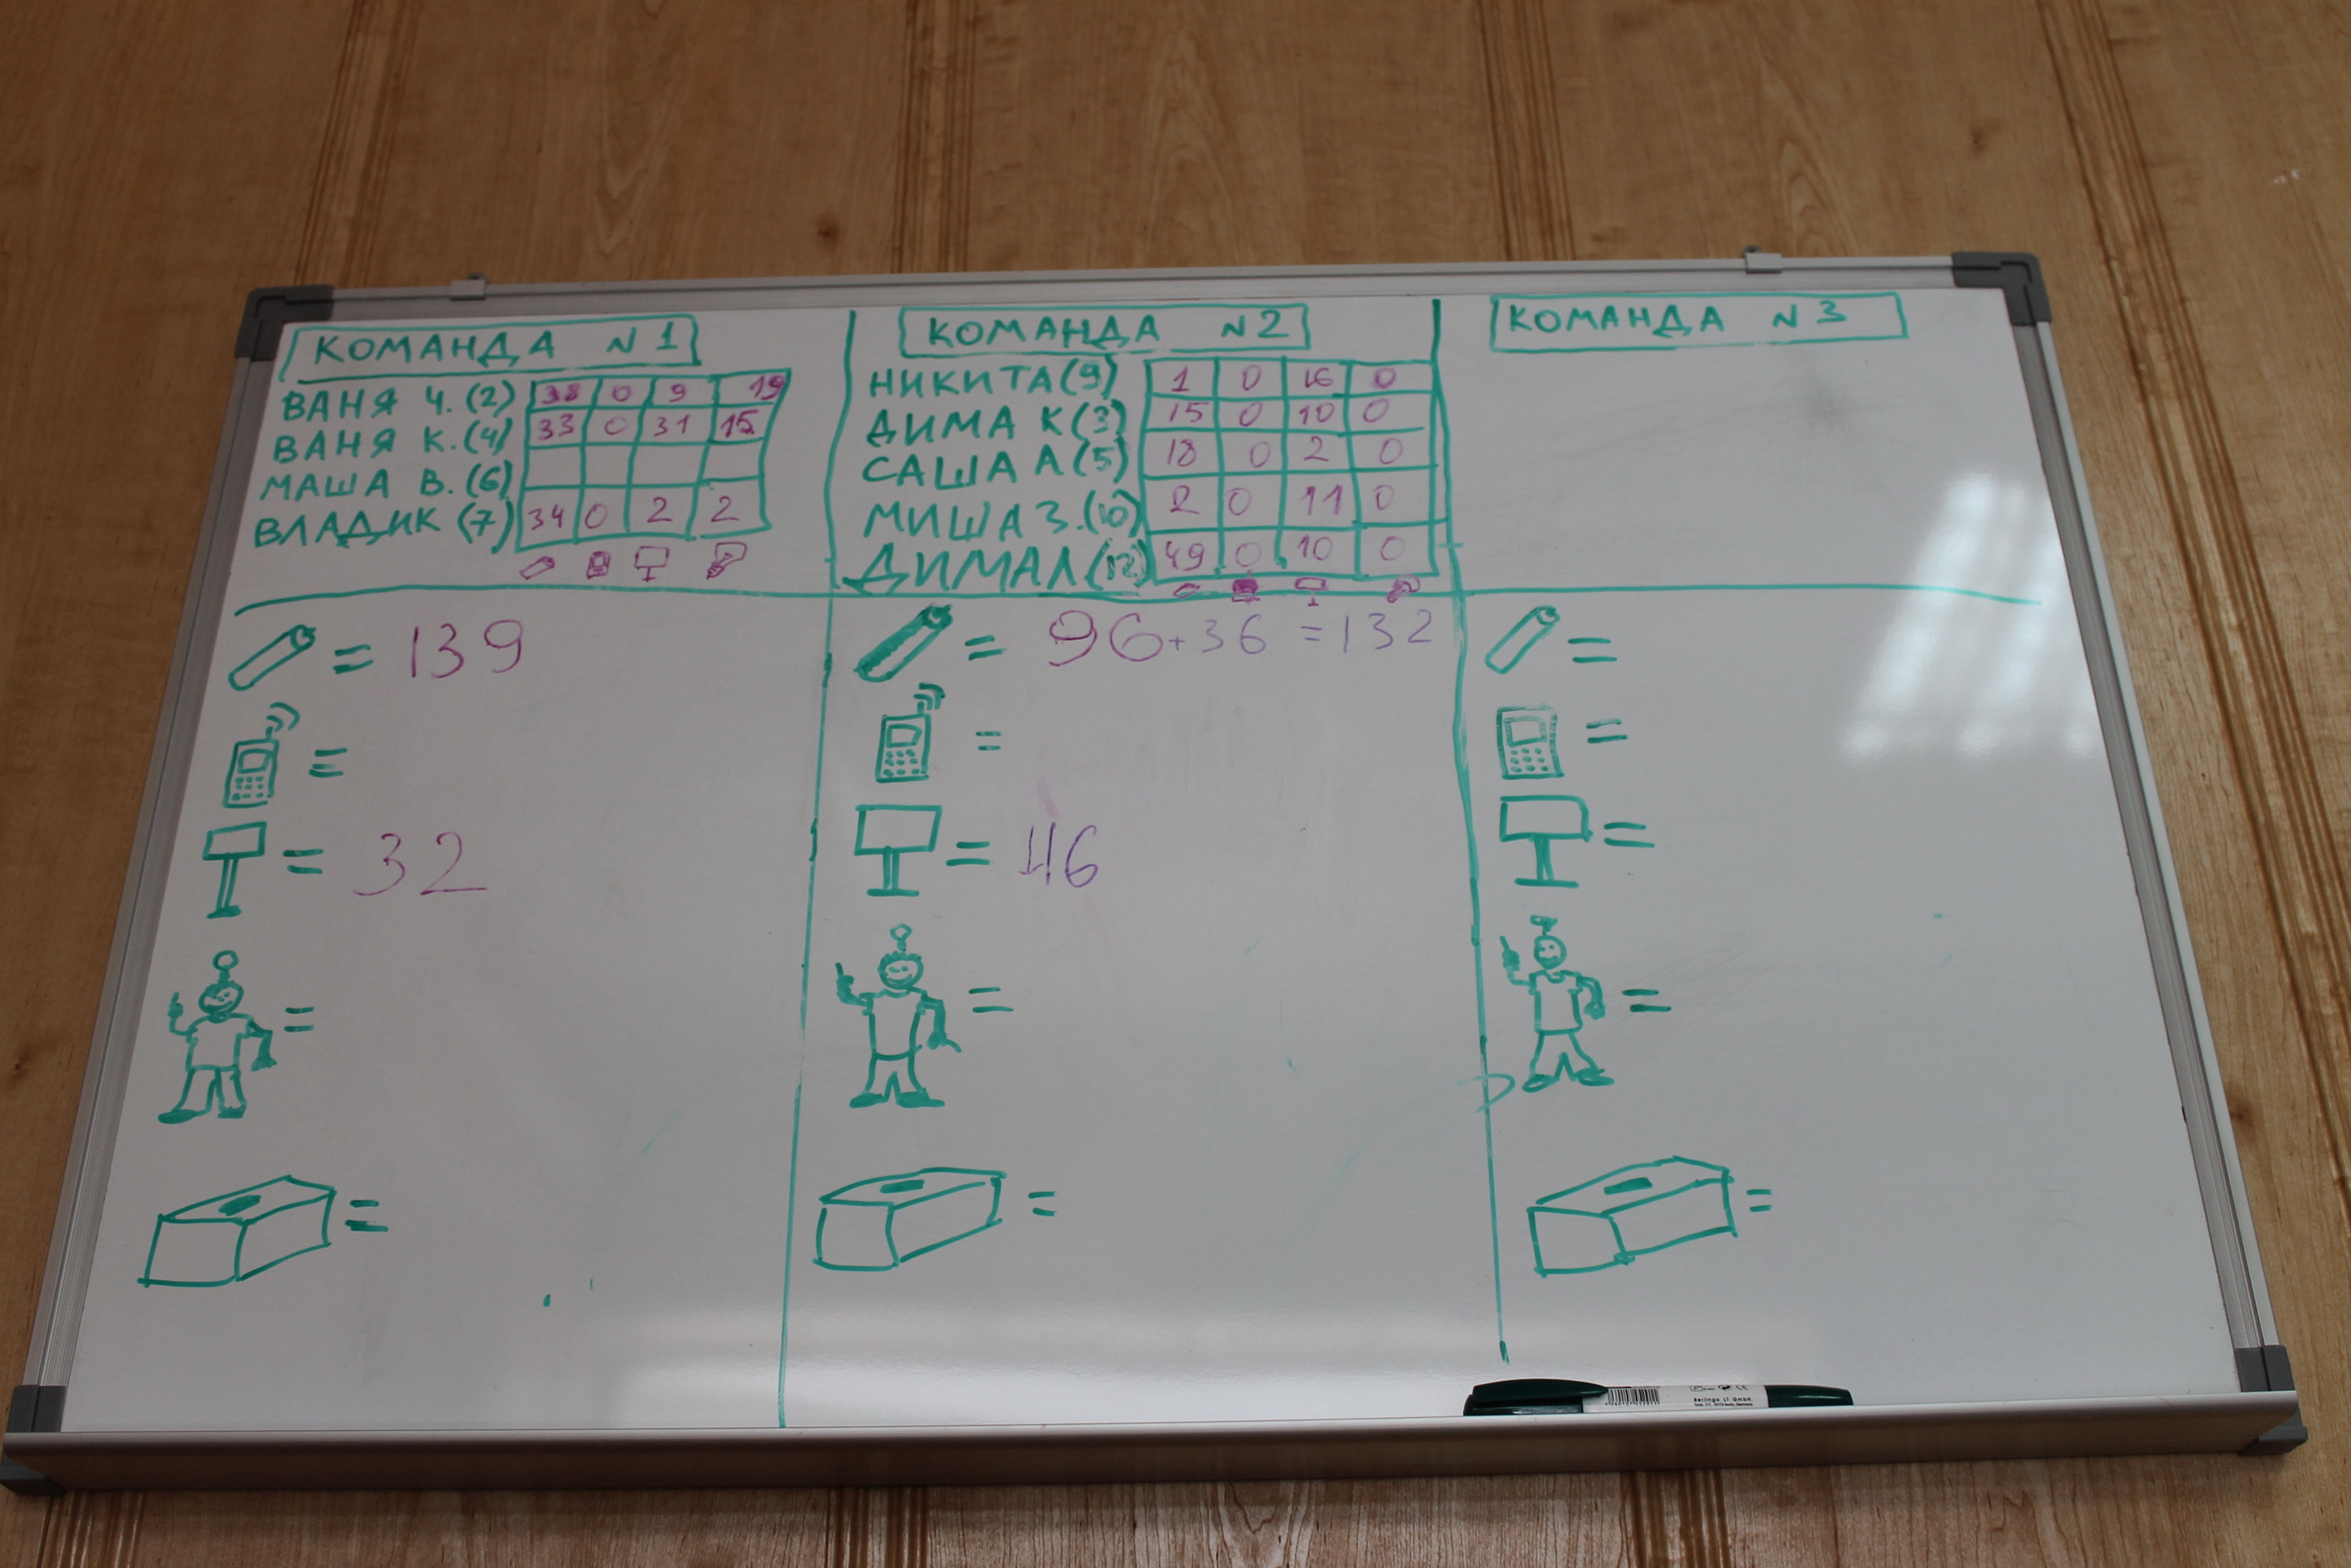 КОМАНДА N1
ВАНЯ Ч. (2) 38 0 9 19
ВАНЯ К. (4) 33 0 31 15
МАША В. (6)
ВЛАДИК (7) 34 0 2 2
= 139
=
= 32
=
=
КОМАНДА N2
НИКИТА (9) 1 0 16 0
ДИМА К (3) 15 0 10 0
САША А (5) 18 0 2 0
МИША З. (10) 2 0 11 0
ДИМА Л (12) 49 0 10 0
= 96+36 =132
=
= 46
=
=
КОМАНДА N3
=
=
=
=
=